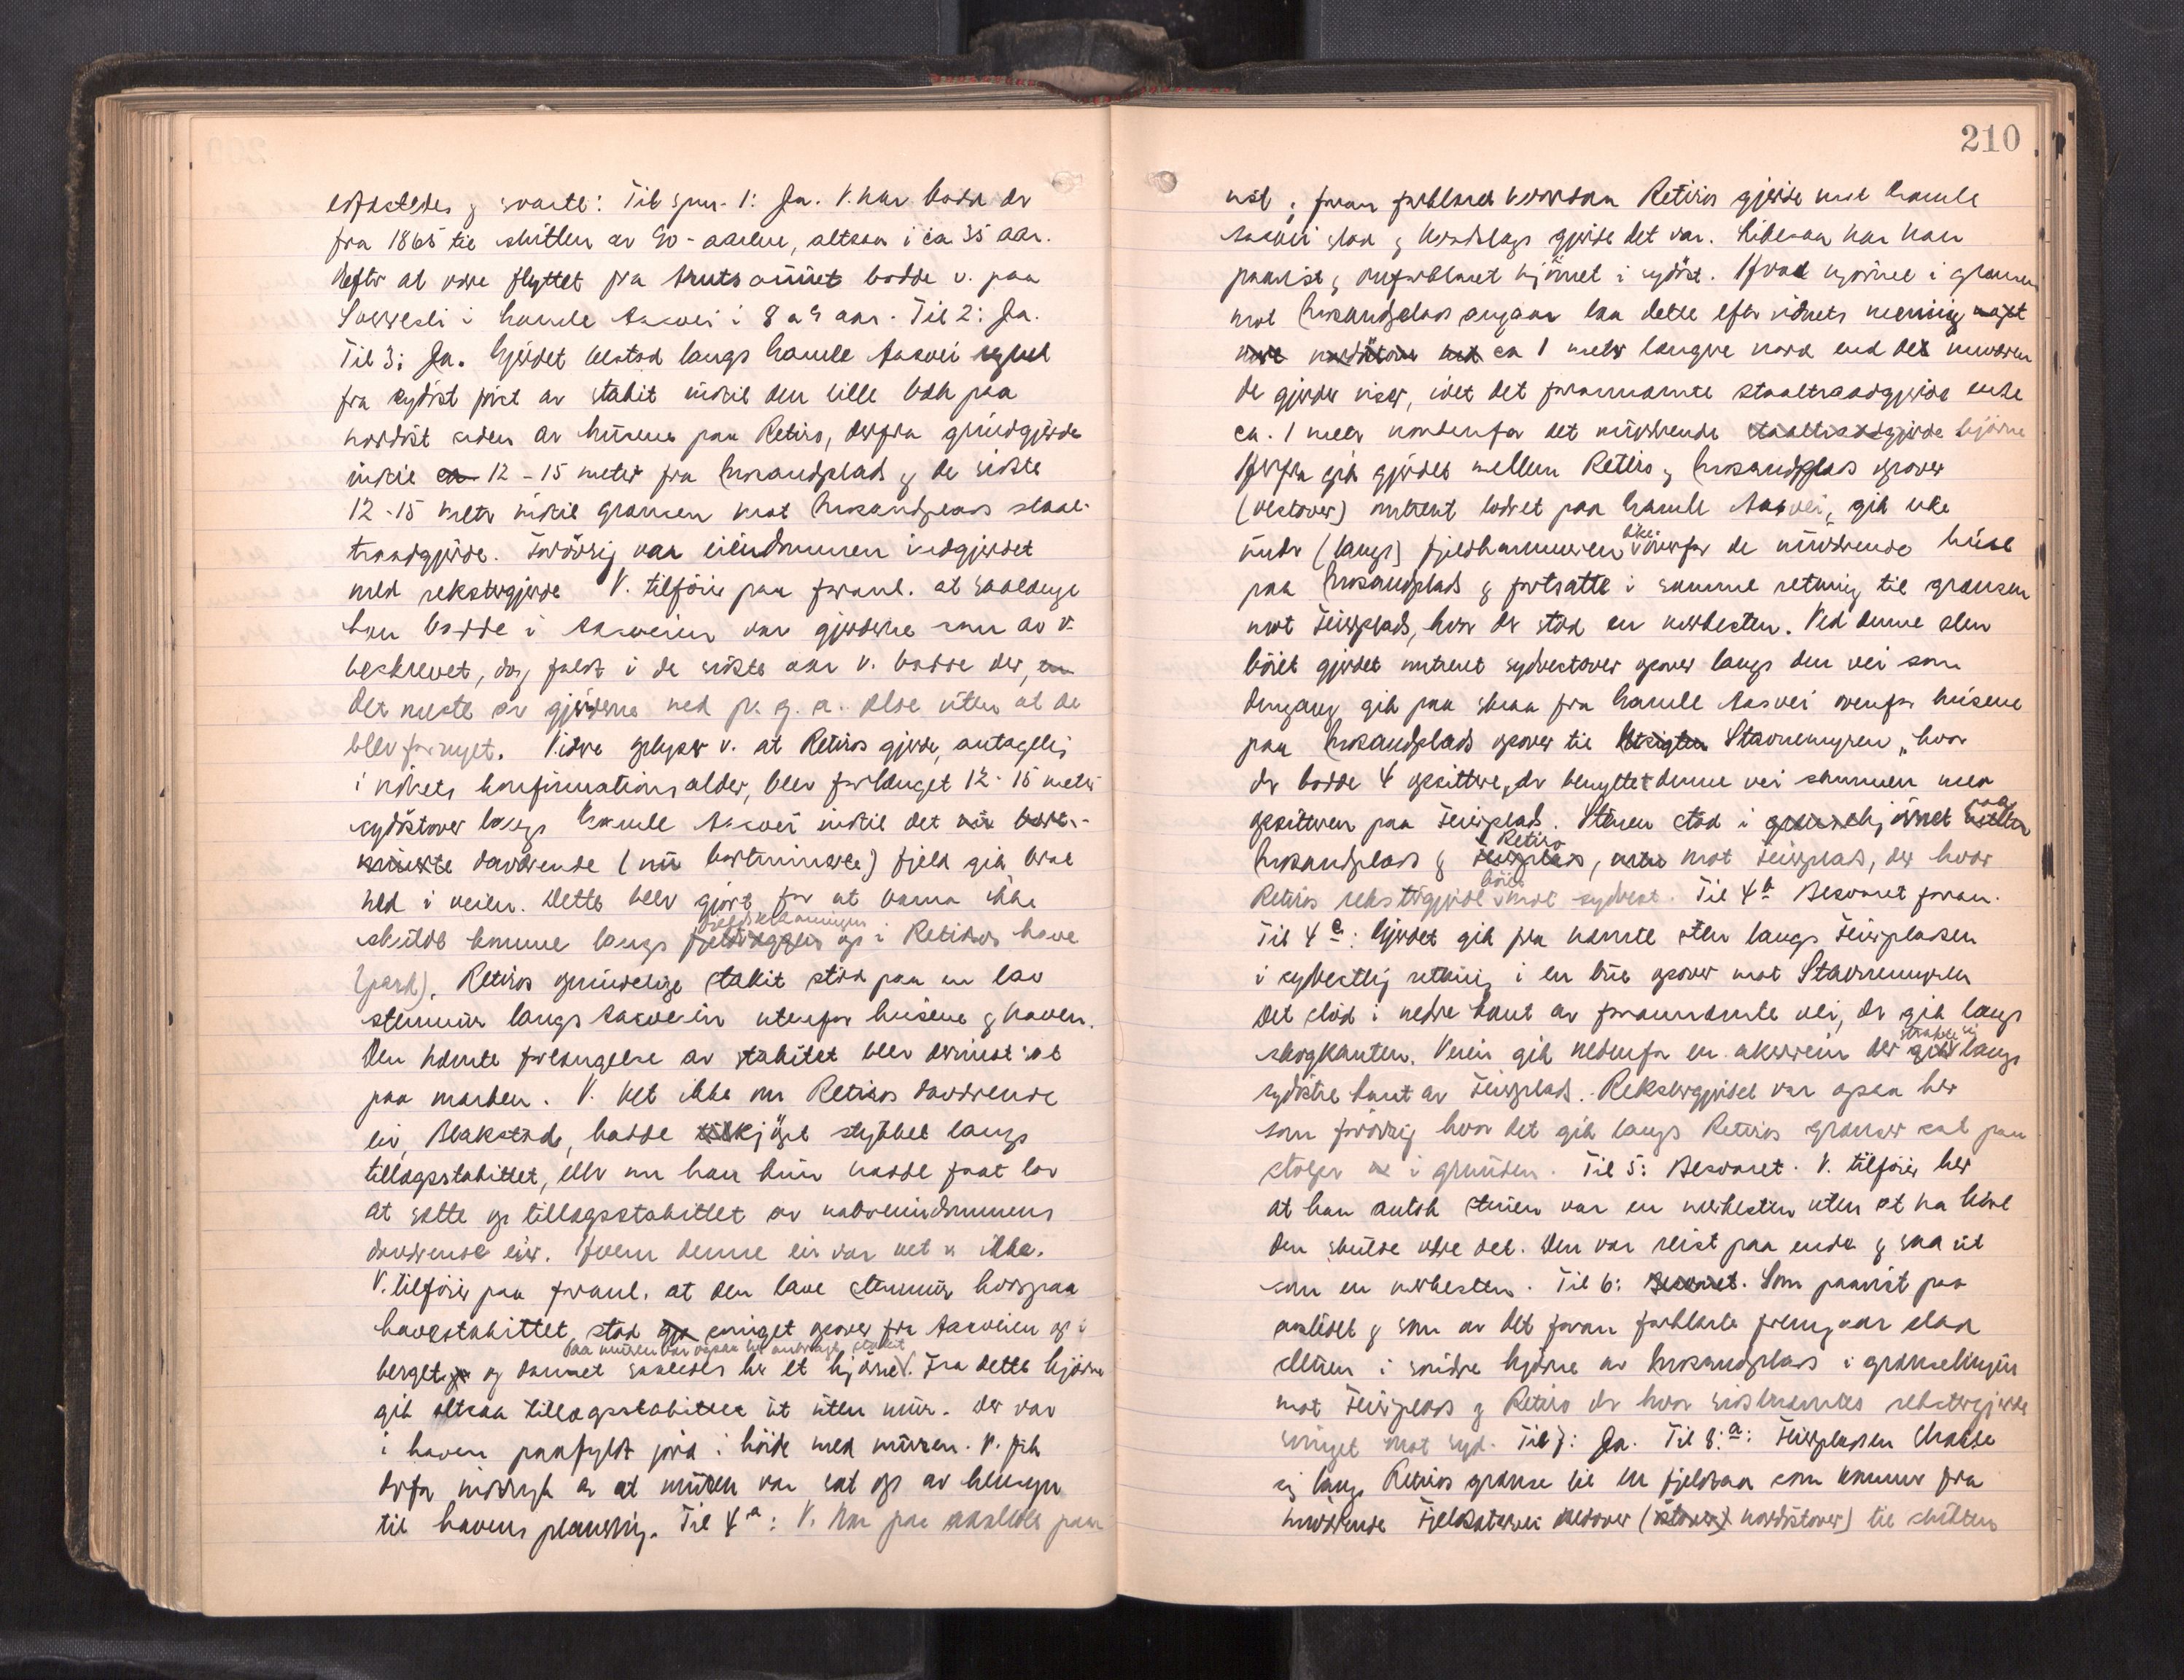 og svarte: Til spm. 1: Ja. V. har bodd der
fra 1865 til slutten av 90-aarene, altsaa i ca 35 aar.
Efter at være flyttet fra bodde v. paa
i Gamle Aasvei i 8 a 9 aar. Til 2: Ja.
Til 3: Ja. Gjerdet bestod langs Gamle Aasvei
fra sydøst først av stakit indtil den lille bæk paa
nordøst siden av husene paa Retiro, derfra grindgjerde
indtil ca 12-15 meter fra Grosandplads & de sidste
12-15 meter indtil grænsen mot Grosandplads staal-
traadgjerde. Forøvrig var eiendommen indgjerdet
med rekstergjerde V. tilføier paa foranl. at saalænge
han bodde i Aasveien var gjerderne som av v.
beskrevet, dog faldt i de sidste aar v. bodde der, en
det meste av gjerderne ned p. g. a. elde uten at de
blev fornyet. Videre oplyser v. at Retiros gjerde, antagelig
i vidnets konfirmationsalder, blev forlænget 12-15 meter
sydøstover langs Gamle Aasvei indtil det nu
daværende (nu bortminerte) fjeld gik brat
ned i veien. Dette blev gjort for at barna ikke
skulde komme langs fjeldskraaningen op i Retiros have
(park). Retiros oprindelige stakit stod paa en lav
stenmur langs Aasveien utenfor husene & haven.
Den nævnte forlængelse av stakitet blev derimot sat
paa marken. V. vet ikke om Retiros daværende
eier, Blakstad, hadde tilkjøpt stykket langs
tillægsstakittet, eller om han kun hadde faat lov
at sætte op tillægsstakittet av naboeiendommens
daværende eier. Hvem denne eier var vet v. ikke.
V. tilføier paa foranl. at den lave stenmur hvorpaa
havestakittet stod svinget opover fra Aasveien op i
Paa muren var ogsaa her anbragt stakit
berget og dannet saaledes her et hjørne. Fra dette hjørne
gik altsaa tillægsstakittet ut uten mur. Der var
i haven paafyldt jord i høide med muren. V. fik
derfor indtryk av at muren var sat op av hensyn
til havens planering. Til 4 a: V. har paa aastedet paa-
210
vist & foran forklaret hvordan Retiros gjerde mot Gamle
Aasvei stod & hvadslags gjerde det var. Likesaa har han
paavist & omforklaret hjørnet i sydøst. Hvad hjørnet i grænsen
mot Grosandplads angaar laa dette efter vidnets mening noget
ca 1 meter længre nord end det nuværen-
de gjerde viser, idet det forannævnte staaltraadgjerde endte
ca. 1 meter nordenfor det nuværende staaltraadgjerde hjørne
Herfra gik gjerdet mellem Retiro & Grosandplads opover
(vestover) omtrent lodret paa Gamle Aasvei, gik
under (langs) fjeldhammeren like ovenfor de nuværende huse
paa Grosandplads & fortsatte i samme retning til grænsen
mot Feierplads, hvor der stod en merkesten. Ved denne sten
bøiet gjerdet omtrent sydvestover opover langs den vei som
dengang gik paa skraa fra Gamle Aasvei ovenfor husene
paa Grosandplads opover til Utsigten Stavnemyren, hvor
der bodde 4 opsittere, der benyttet denne vei sammen med
opsitteren paa Feierplads. Stenen stod i grænsehjørnet
Retiro
Grosandplads & Feierplads, mot Feierplads, der hvor
bøiet
Retiros rekstergjerde mot sydvest. Til 4 b Besvaret foran.
Til 4 c: Gjerdet gik fra nævnte sten langs Feierpladsen
i sydvestlig retning i en bue opover mot Stavnemyren
Det stod i nedre kant av forannævnte vei, der gik langs
skogkanten. Veien gik nedenfor en akerrein der strakte sig langs
sydøstre kant av Feierplads. Rekstergjerdet var ogsaa her
som forøvrig hvor det gik langs Retiros grænser sat paa
stolper i grunden. Til 5: Besvaret. V. tilføier her
at han antok stenen var en merkesten uten at ha hørt
den skulde være det. Den var reist paa ende & saa ut
som en merkesten. Til 6: Besvaret. Som paavist paa
aastedet & som av det foran forklarte fremgaar stod
stenen i søndre hjørne av Grosandplads i grænselinjen
mot Feierplads & Retiro der hvor sistnævntes rekstergjerde
svinget mot syd. Til 7: Ja. Til 8 a: Feierpladsen strakte
sig langs Retiros grænse til en fjeldbæk som kommer fra
nuværende Fjeldsæterveien nedover (østover) nordøstover) til slutten